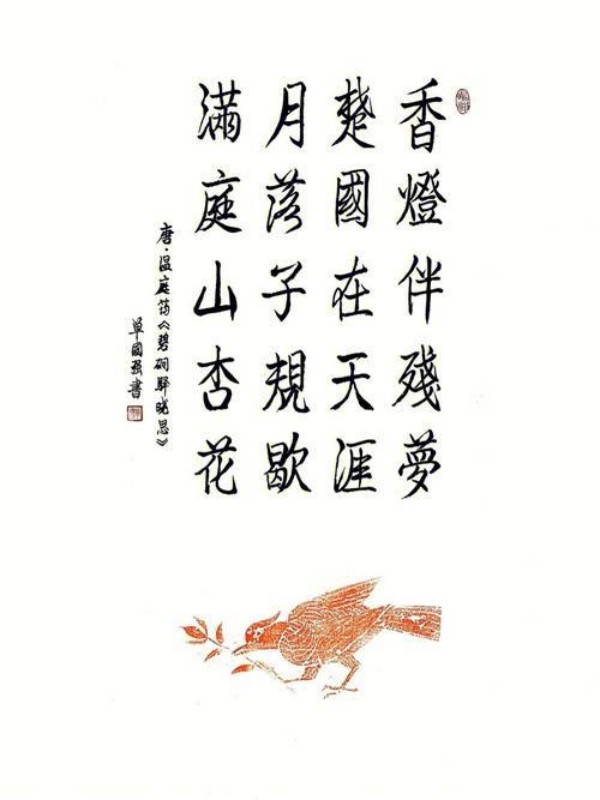 香燈伴殘夢
楚國在天涯
月落子規歇
滿庭山杏花
唐·温庭筠《碧磵驛曉思》
單國强書